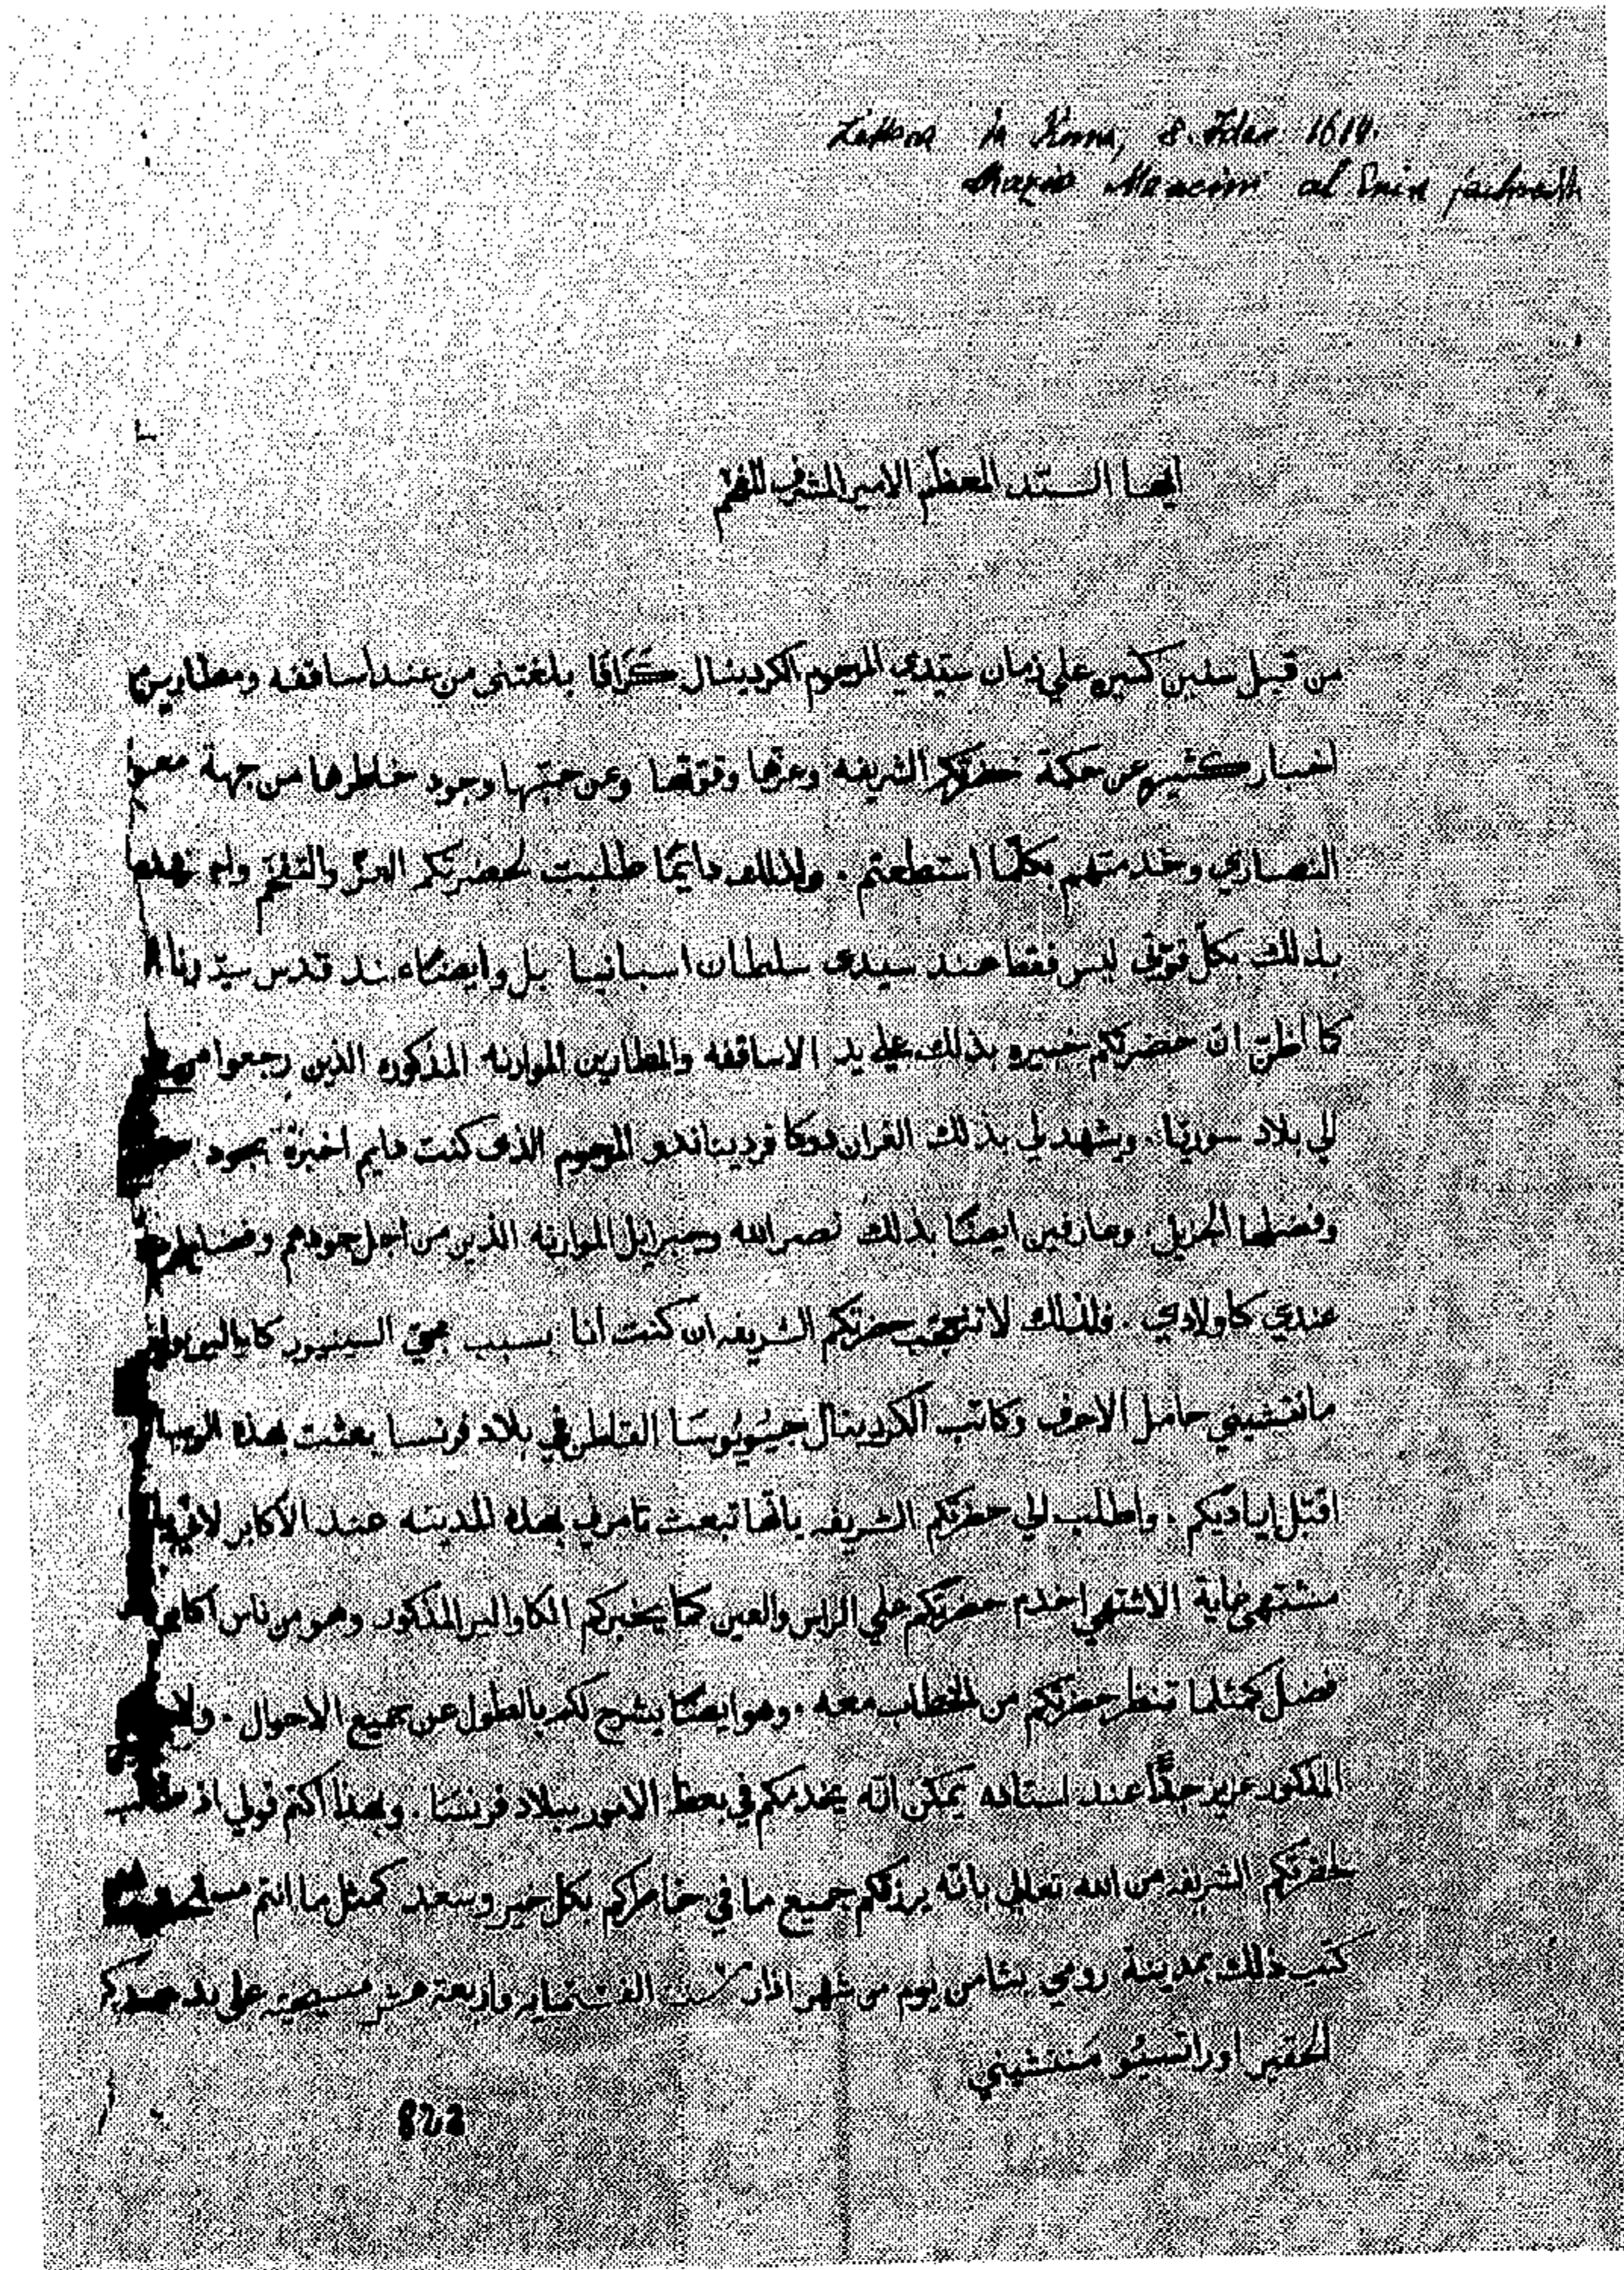 8. 1614.
al
ايها السيد المعظم الامير المشرف المفخم
من قبل سنين كثيره علي زمان سيدي المرحوم الكردينال كرافا بلغتني من عند اساقفه ومطارين
اخبار كثيره عن حكمة حضرتكم الشريفه وعزها وقوتها وعن محبتها وجود خاطرها من جهة
النصاري وخدمتهم بكلما استطعتم . ولذلك دايمًا طلبت لحضرتكم العز والتفخم
بذلك بكل قوتي ليس فقط عند سيدي سلطان اسبانيا بل وايضًا عند قدس سيدنا
كما اظن ان حضرتكم خبيره بذلك علي يد الاساقفه والمطارين الموارنه المذكوره الذين رجعوا
الي بلاد سوريا . ويشهد لي بذلك الغران دوكا فرديناندو المرحوم الذي كنت دايم اخبره بجود
وفضلها الجزيل . وعارفين ايضًا بذلك نصر الله وجبرايل الموارنه الذين من اجل جودهم
عندي كاولادي . فلذلك لا تتعجب حضرتكم الشريفه ان كنت انا بسبب مجي السينيور
مانتشيني حامل الاحرف وكاتب الكردينال جيويوسا القاطن في بلاد فرنسا بعثت بهذه
اقبل اياديكم . واطلب الي حضرتكم الشريفه بانها تبعث تامرني بهذه المدينه عند الاكابر
مشتهي غاية الاشتهي اخدم حضرتكم علي الراس والعين كما يخبركم الكاوالير المذكور وهو من ناس اكابر
فضل كمثلما تنظر حضرتكم من الخطاب معه . وهو ايضًا يشرح لكم بالطول عن جميع الاحوال .
المذكور عزيز جدًّا عند استاده يمكن انه يخدمكم في بعض الامور ببلاد فرنسا . وبهذا اكتم قولي اذ
لحضرتكم الشريفه من الله تعالي بانه يرزقكم جميع ما في خاطركم بكل خير وسعد كمثل ما انتم
كتب ذلك بمدينة رومي بثامن يوم من شهر اذار سنة الف وستمايه واربعة عشر مسيحيه علي يد
الحقير اوراتسيو منتشيني